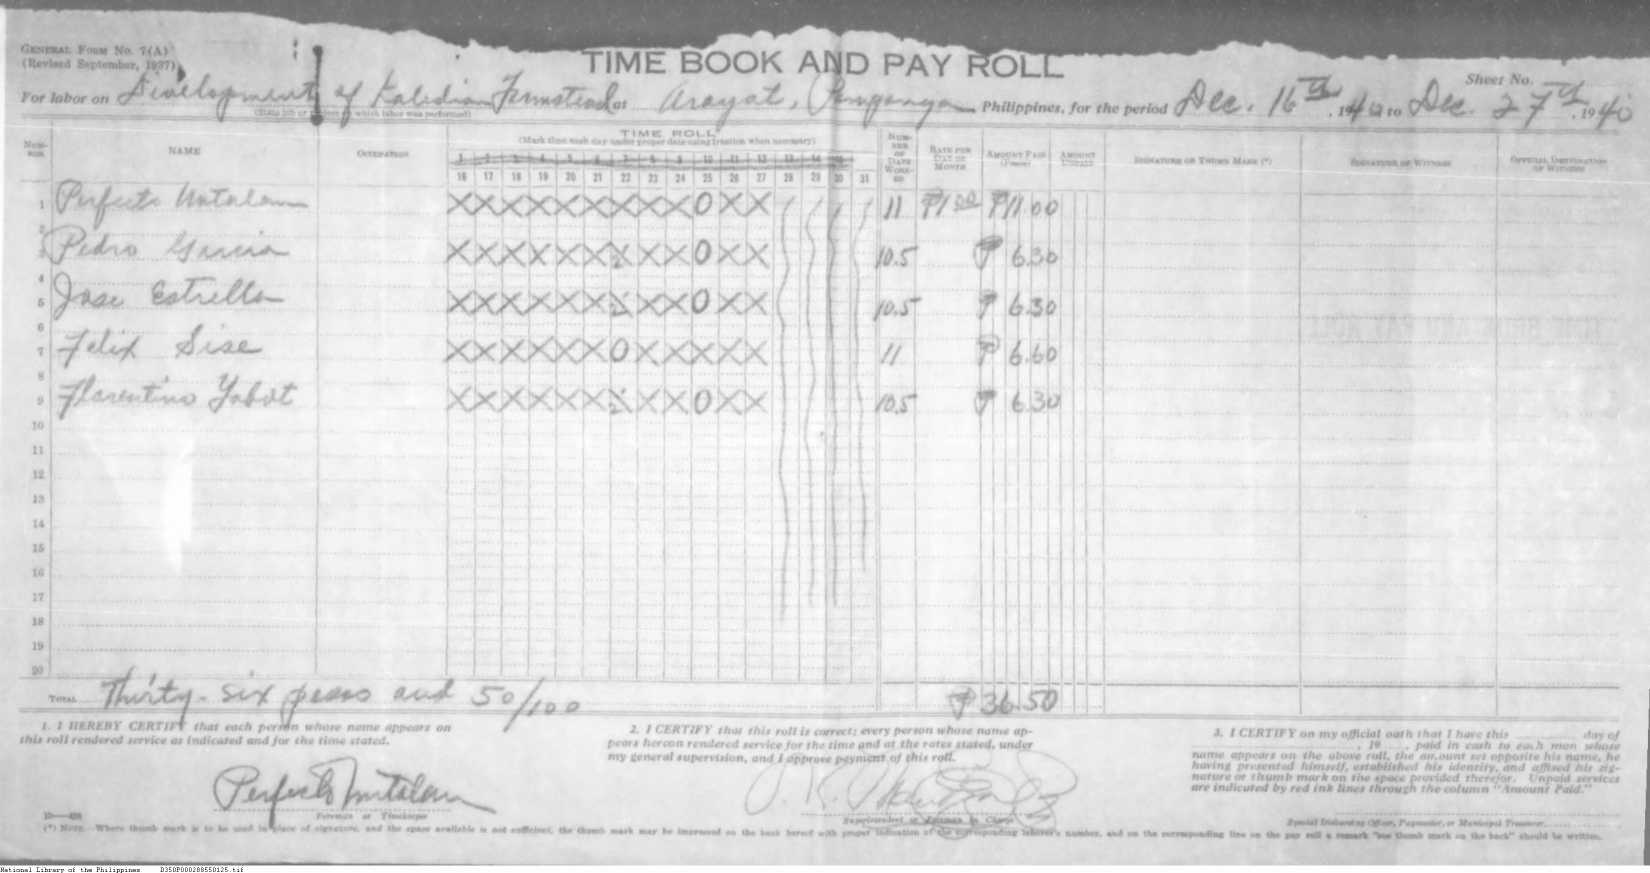 GENERAL FORM No. 7(A)
(Revised September, 1937)
TIME BOOK AND PAY ROLL
Sheet No.
For labor on Development of Kalidian Farmstead at Arayat, Pampanga Philippines, for the period Dec. 16th, 1940 to Dec. 27th, 1940
(State job or project on which labor was performed)
NUMBER NAME OCCUPATION TIME ROLL NUMBER OF DAYS WORKED RATE PER DAY OR MONTH AMOUNT PAID (Pesos) AMOUNT UNPAID SIGNATURE OR THUMB MARK (*) SIGNATURE OF WITNESS OFFICIAL DESIGNATION OF WITNESS
(Mark time each day under proper date using fraction when necessary)
1 2 3 4 5 6 7 8 9 10 11 12 13 14 15
16 17 18 19 20 21 22 23 24 25 26 27 28 29 30 31
1 Perfecto Mutalam X X X X X X X X X O X X 11 ₱1.00 ₱11.00
2
3 Pedro Garcia X X X X X X ½ X X O X X 10.5 ₱ 6.30
4
5 Jose Estrella X X X X X X ½ X X O X X 10.5 ₱ 6.30
6
7 Felix Sise X X X X X X O X X X X X 11 ₱ 6.60
8
9 Florentino Yabot X X X X X X ½ X X O X X 10.5 ₱ 6.30
10
11
12
13
14
15
16
17
18
19
20
TOTAL Thirty-six pesos and 50/100 ₱36.50
1. I HEREBY CERTIFY that each person whose name appears on
this roll rendered service as indicated and for the time stated.
Perfecto Mutalam
Foreman or Timekeeper
2. I CERTIFY that this roll is correct; every person whose name ap-
pears hereon rendered service for the time and at the rates stated, under
my general supervision, and I approve payment of this roll.
Superintendent or Foreman in Charge
3. I CERTIFY on my official oath that I have this day of
, 19 , paid in cash to each man whose
name appears on the above roll, the amount set opposite his name, he
having presented himself, established his identity, and affixed his sig-
nature or thumb mark on the space provided therefor. Unpaid services
are indicated by red ink lines through the column "Amount Paid."
Special Disbursing Officer, Paymaster, or Municipal Treasurer
(*) NOTE.—Where thumb mark is to be used in place of signature, and the space available is not sufficient, the thumb mark may be impressed on the back hereof with proper indication of the corresponding laborer's number, and on the corresponding line on the pay roll a remark "see thumb mark on the back" should be written.
National Library of the Philippines D350P000288550125.tif